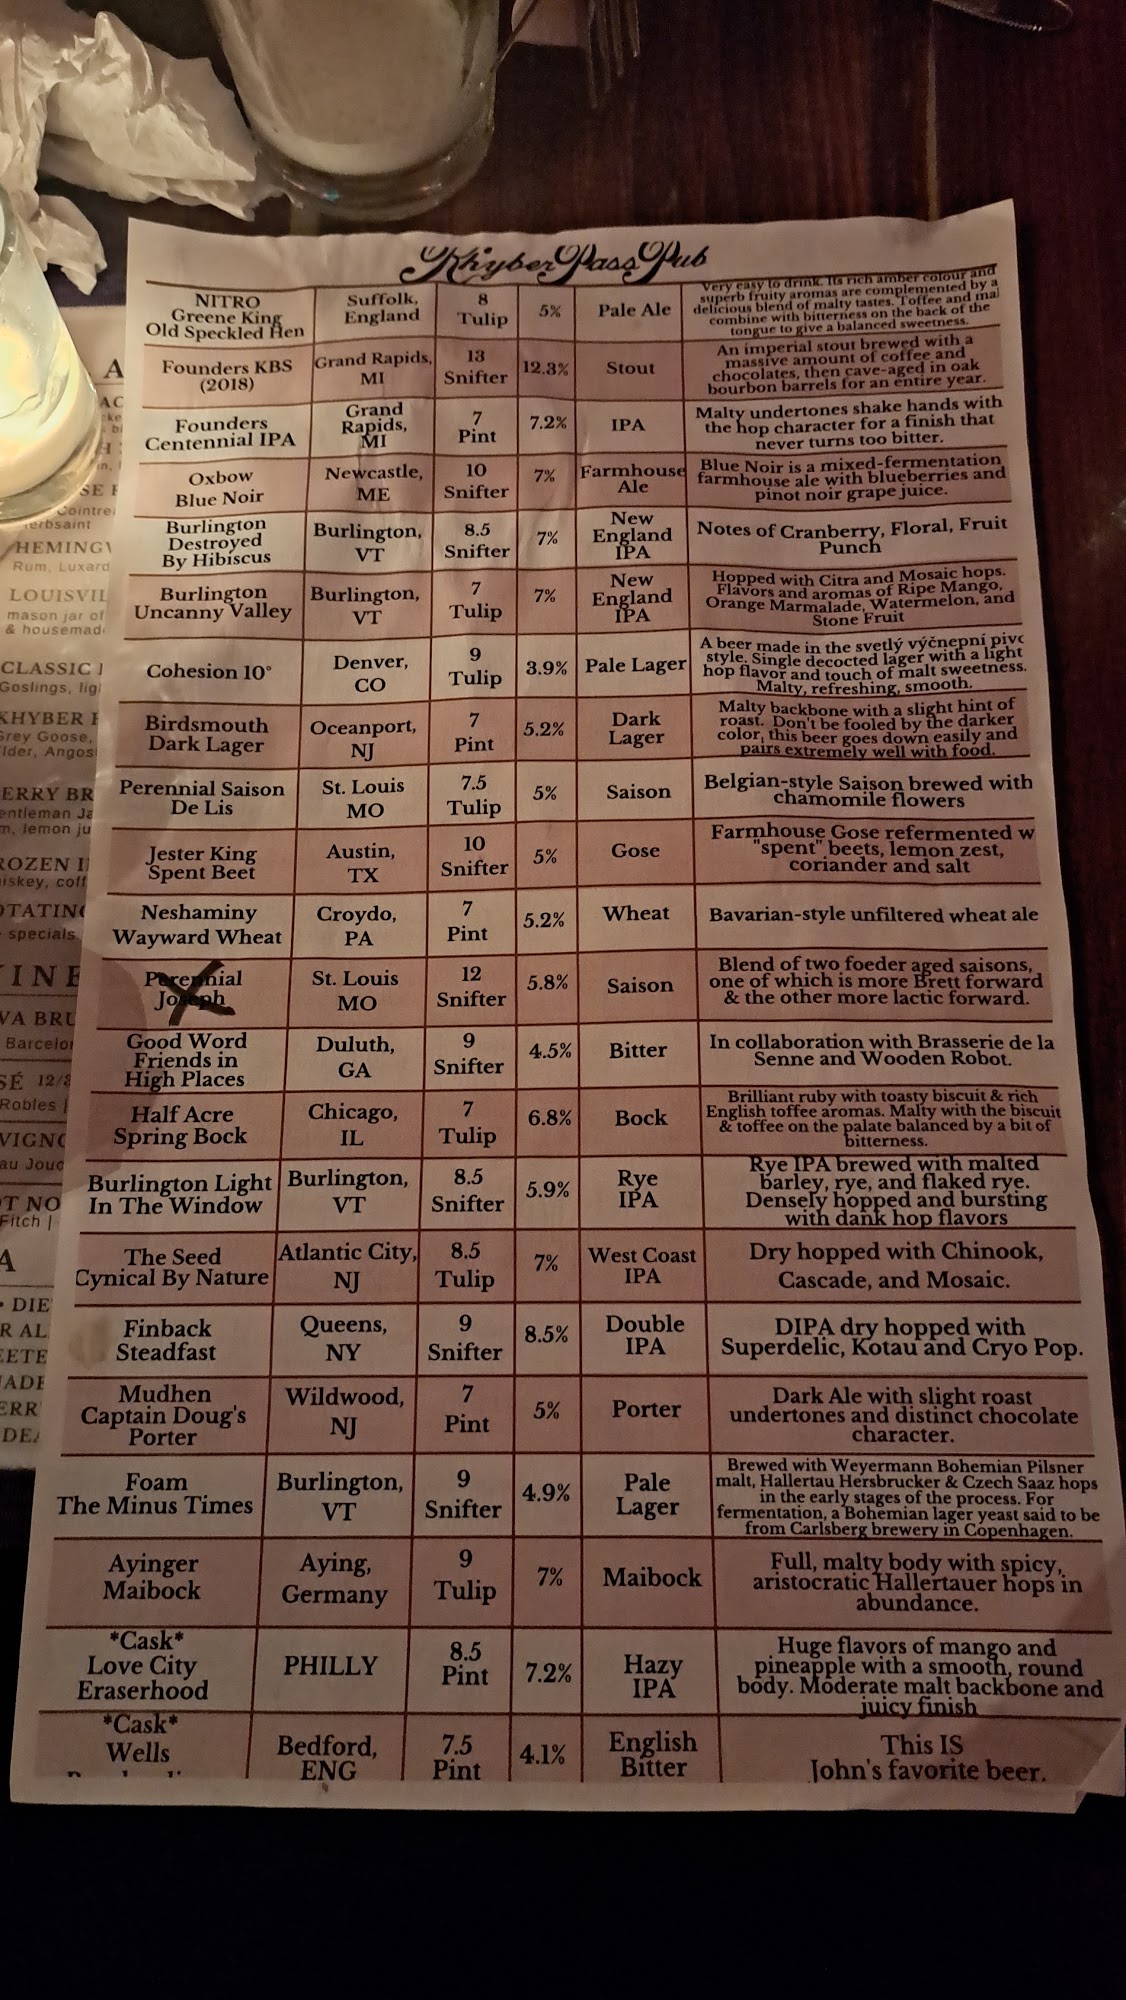 Khyber Pass Pub
NITRO
Greene King
Old Speckled Hen
Suffolk,
England
8
Tulip
5%
Pale Ale
Very easy to drink. Its rich amber colour and
superb fruity aromas are complemented by a
delicious blend of malty tastes. Toffee and mal
combine with bitterness on the back of the
tongue to give a balanced sweetness.
Founders KBS
(2018)
Grand Rapids,
MI
13
Snifter
12.3%
Stout
An imperial stout brewed with a
massive amount of coffee and
chocolates, then cave-aged in oak
bourbon barrels for an entire year.
Founders
Centennial IPA
Grand
Rapids,
MI
7
Pint
7.2%
IPA
Malty undertones shake hands with
the hop character for a finish that
never turns too bitter.
Oxbow
Blue Noir
Newcastle,
ME
10
Snifter
7%
Farmhouse
Ale
Blue Noir is a mixed-fermentation
farmhouse ale with blueberries and
pinot noir grape juice.
Burlington
Destroyed
By Hibiscus
Burlington,
VT
8.5
Snifter
7%
New
England
IPA
Notes of Cranberry, Floral, Fruit
Punch
Burlington
Uncanny Valley
Burlington,
VT
7
Tulip
7%
New
England
IPA
Hopped with Citra and Mosaic hops.
Flavors and aromas of Ripe Mango,
Orange Marmalade, Watermelon, and
Stone Fruit
Cohesion 10°
Denver,
CO
9
Tulip
3.9%
Pale Lager
A beer made in the svetlý výčnepní pivo
style. Single decocted lager with a light
hop flavor and touch of malt sweetness.
Malty, refreshing, smooth.
Birdsmouth
Dark Lager
Oceanport,
NJ
7
Pint
5.2%
Dark
Lager
Malty backbone with a slight hint of
roast. Don't be fooled by the darker
color, this beer goes down easily and
pairs extremely well with food.
Perennial Saison
De Lis
St. Louis
MO
7.5
Tulip
5%
Saison
Belgian-style Saison brewed with
chamomile flowers
Jester King
Spent Beet
Austin,
TX
10
Snifter
5%
Gose
Farmhouse Gose refermented w
"spent" beets, lemon zest,
coriander and salt
Neshaminy
Wayward Wheat
Croydo,
PA
7
Pint
5.2%
Wheat
Bavarian-style unfiltered wheat ale
Perennial
Joseph
St. Louis
MO
12
Snifter
5.8%
Saison
Blend of two foeder aged saisons,
one of which is more Brett forward
& the other more lactic forward.
Good Word
Friends in
High Places
Duluth,
GA
9
Snifter
4.5%
Bitter
In collaboration with Brasserie de la
Senne and Wooden Robot.
Half Acre
Spring Bock
Chicago,
IL
7
Tulip
6.8%
Bock
Brilliant ruby with toasty biscuit & rich
English toffee aromas. Malty with the biscuit
& toffee on the palate balanced by a bit of
bitterness.
Burlington Light
In The Window
Burlington,
VT
8.5
Snifter
5.9%
Rye
IPA
Rye IPA brewed with malted
barley, rye, and flaked rye.
Densely hopped and bursting
with dank hop flavors
The Seed
Cynical By Nature
Atlantic City,
NJ
8.5
Tulip
7%
West Coast
IPA
Dry hopped with Chinook,
Cascade, and Mosaic.
Finback
Steadfast
Queens,
NY
9
Snifter
8.5%
Double
IPA
DIPA dry hopped with
Superdelic, Kotau and Cryo Pop.
Mudhen
Captain Doug's
Porter
Wildwood,
NJ
7
Pint
5%
Porter
Dark Ale with slight roast
undertones and distinct chocolate
character.
Foam
The Minus Times
Burlington,
VT
9
Snifter
4.9%
Pale
Lager
Brewed with Weyermann Bohemian Pilsner
malt, Hallertau Hersbrucker & Czech Saaz hops
in the early stages of the process. For
fermentation, a Bohemian lager yeast said to be
from Carlsberg brewery in Copenhagen.
Ayinger
Maibock
Aying,
Germany
9
Tulip
7%
Maibock
Full, malty body with spicy,
aristocratic Hallertauer hops in
abundance.
*Cask*
Love City
Eraserhood
PHILLY
8.5
Pint
7.2%
Hazy
IPA
Huge flavors of mango and
pineapple with a smooth, round
body. Moderate malt backbone and
juicy finish
*Cask*
Wells
Bedford,
ENG
7.5
Pint
4.1%
English
Bitter
This IS
John's favorite beer.
HEMINGW
Rum, Luxard
LOUISVIL
mason jar of
& housemad
CLASSIC
Goslings, lig
KHYBER
Grey Goose,
lder, Angos
ERRY BR
entleman Ja
m, lemon ju
ROZEN I
iskey, coff
OTATING
specials
VINE
VA BRU
Barcelo
SÉ 12/
Robles |
VIGNO
au Jouc
OT NO
Fitch |
A
DIE
R AL
EETE
ADE
ERR
DEA